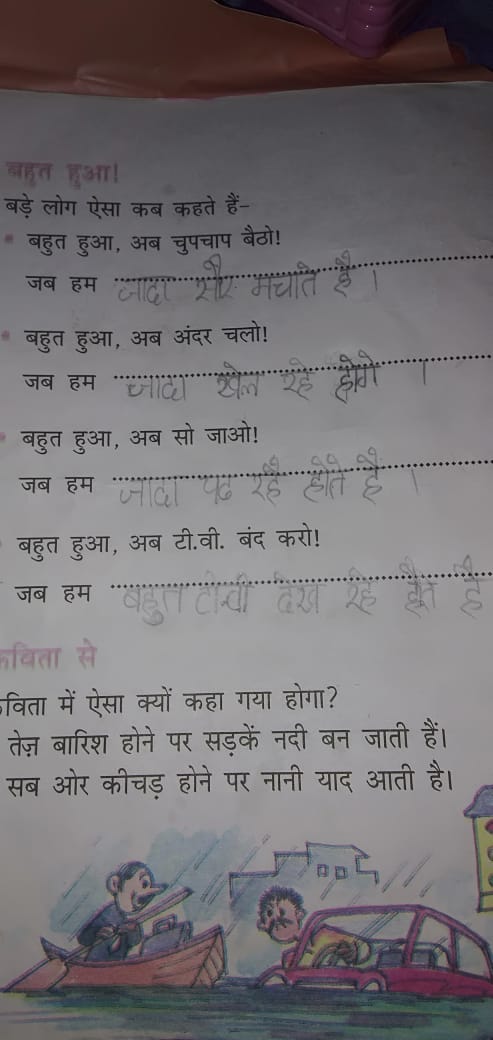 बहुत हुआ!
बड़े लोग ऐसा कब कहते हैं-
बहुत हुआ, अब चुपचाप बैठो!
जब हम जादा सौर मचाते है ।
बहुत हुआ, अब अंदर चलो!
जब हम जादा खेल रहे होगे ।
बहुत हुआ, अब सो जाओ!
जब हम जादा पढ रहै होते है ।
बहुत हुआ, अब टी.वी. बंद करो!
जब हम बहुत टीवी देख रहे होते है
कविता से
कविता में ऐसा क्यों कहा गया होगा?
तेज़ बारिश होने पर सड़कें नदी बन जाती हैं।
सब ओर कीचड़ होने पर नानी याद आती है।